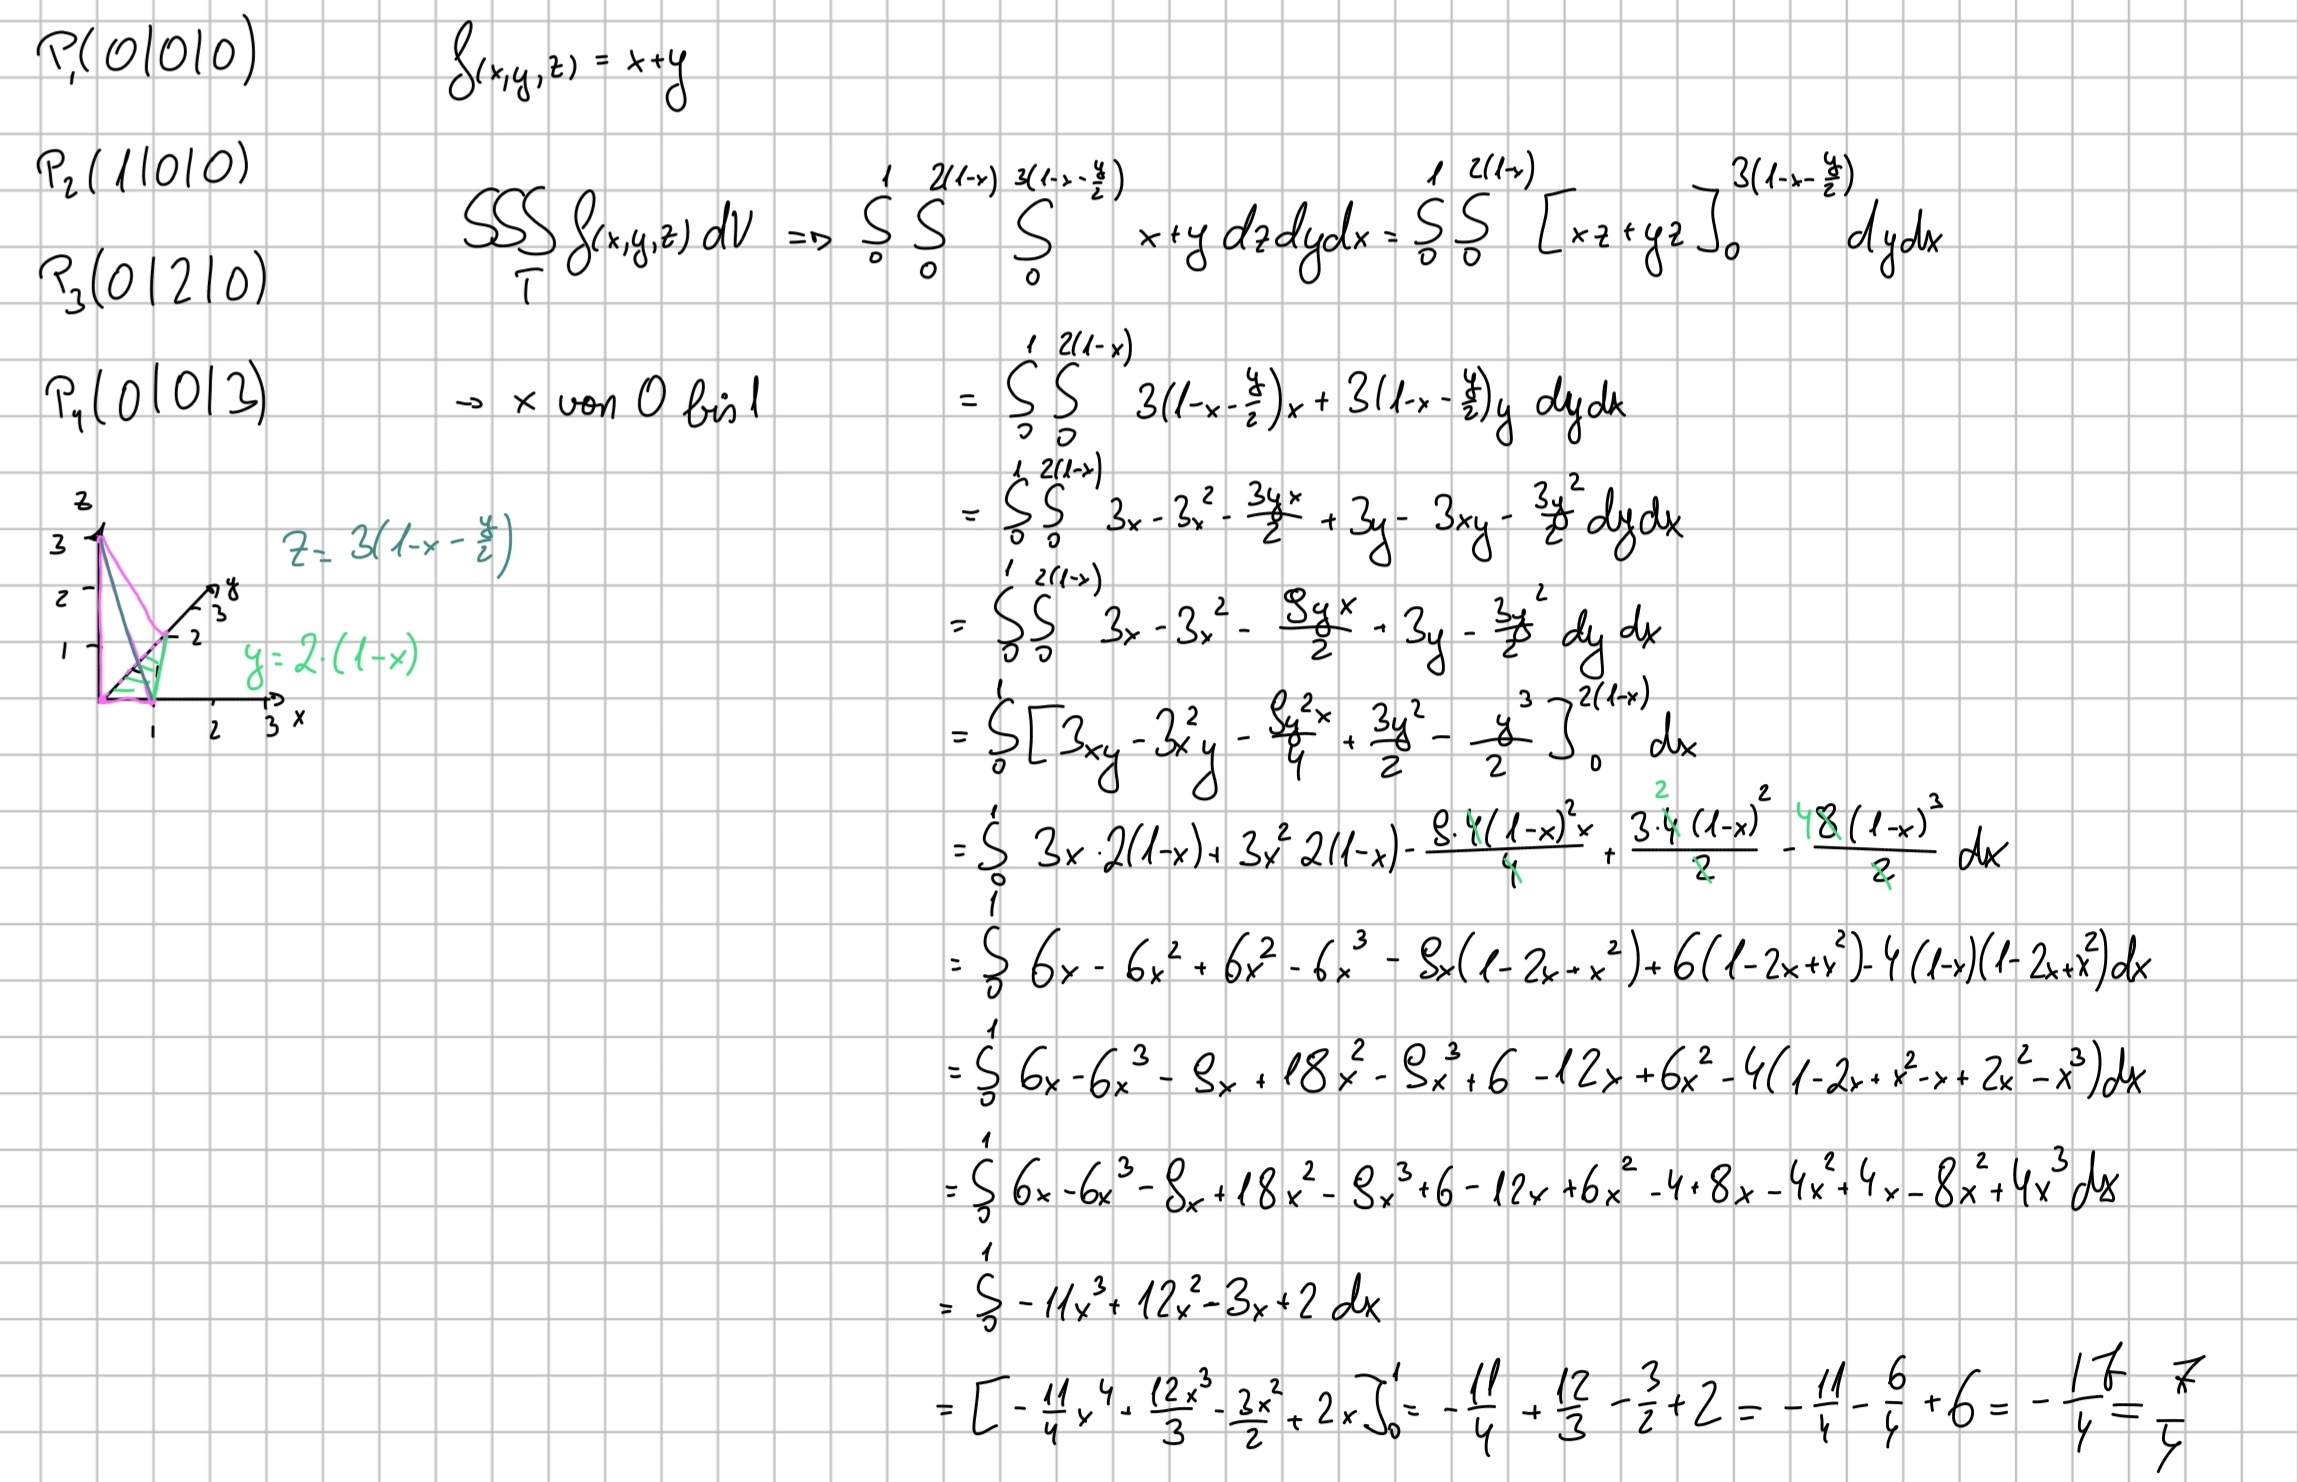 P₁(0|0|0)
f(x,y,z) = x+y
P₂(1|0|0)
∫∫∫_T f(x,y,z) dV => ∫₀^1 ∫₀^{2(1-x)} ∫₀^{3(1-x-y/2)} x+y dzdydx = ∫₀^1 ∫₀^{2(1-x)} [xz+yz]₀^{3(1-x-y/2)} dydx
P₃(0|2|0)
P₄(0|0|3)
→ x von 0 bis 1
= ∫₀^1 ∫₀^{2(1-x)} 3(1-x-y/2)x + 3(1-x-y/2)y dydx
= ∫₀^1 ∫₀^{2(1-x)} 3x - 3x² - 3yx/2 + 3y - 3xy - 3y²/2 dydx
z
3
2
1
y
3
2
1
1
2
3
x
z = 3(1-x-y/2)
y = 2·(1-x)
= ∫₀^1 ∫₀^{2(1-x)} 3x - 3x² - 9yx/2 + 3y - 3y²/2 dy dx
= ∫₀^1 [3xy - 3x²y - 9y²x/4 + 3y²/2 - y³/2]₀^{2(1-x)} dx
= ∫₀^1 3x·2(1-x) + 3x²2(1-x) - 9·4(1-x)²x/4 + 3·4(1-x)²/2 - 8(1-x)³/2 dx
2
4
= ∫₀^1 6x - 6x² + 6x² - 6x³ - 9x(1-2x+x²) + 6(1-2x+x²) - 4(1-x)(1-2x+x²)dx
= ∫₀^1 6x - 6x³ - 9x + 18x² - 9x³ + 6 - 12x + 6x² - 4(1-2x+x²-x+2x²-x³)dx
= ∫₀^1 6x - 6x³ - 9x + 18x² - 9x³ + 6 - 12x + 6x² - 4 + 8x - 4x² + 4x - 8x² + 4x³ dx
= ∫₀^1 -11x³ + 12x² - 3x + 2 dx
= [-11/4 x⁴ + 12x³/3 - 3x²/2 + 2x]₀^1 = -11/4 + 12/3 - 3/2 + 2 = -11/4 - 6/4 + 6 = -17/4 = 7/4